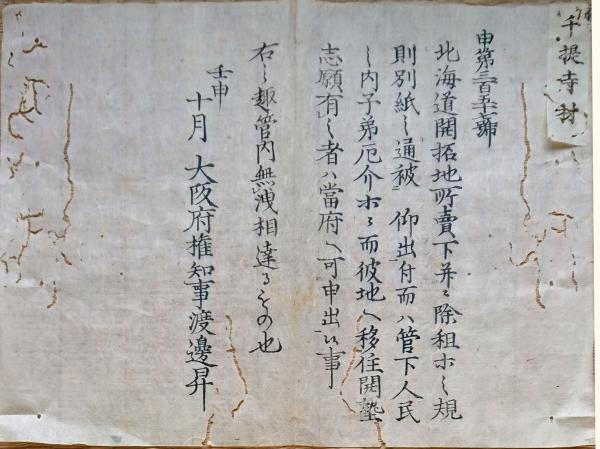 千提寺村
申第三百五十二號
北海道開拓地所賣下并ニ除租ホ之規
則別紙之通被 仰出付而ハ管下人民
之内子弟厄介ホニ而彼地ヘ移住開墾
志願有之者ハ當府ヘ可申出候事
右之趣管内無洩相達るもの也
壬申
十月 大阪府権知事渡邊昇